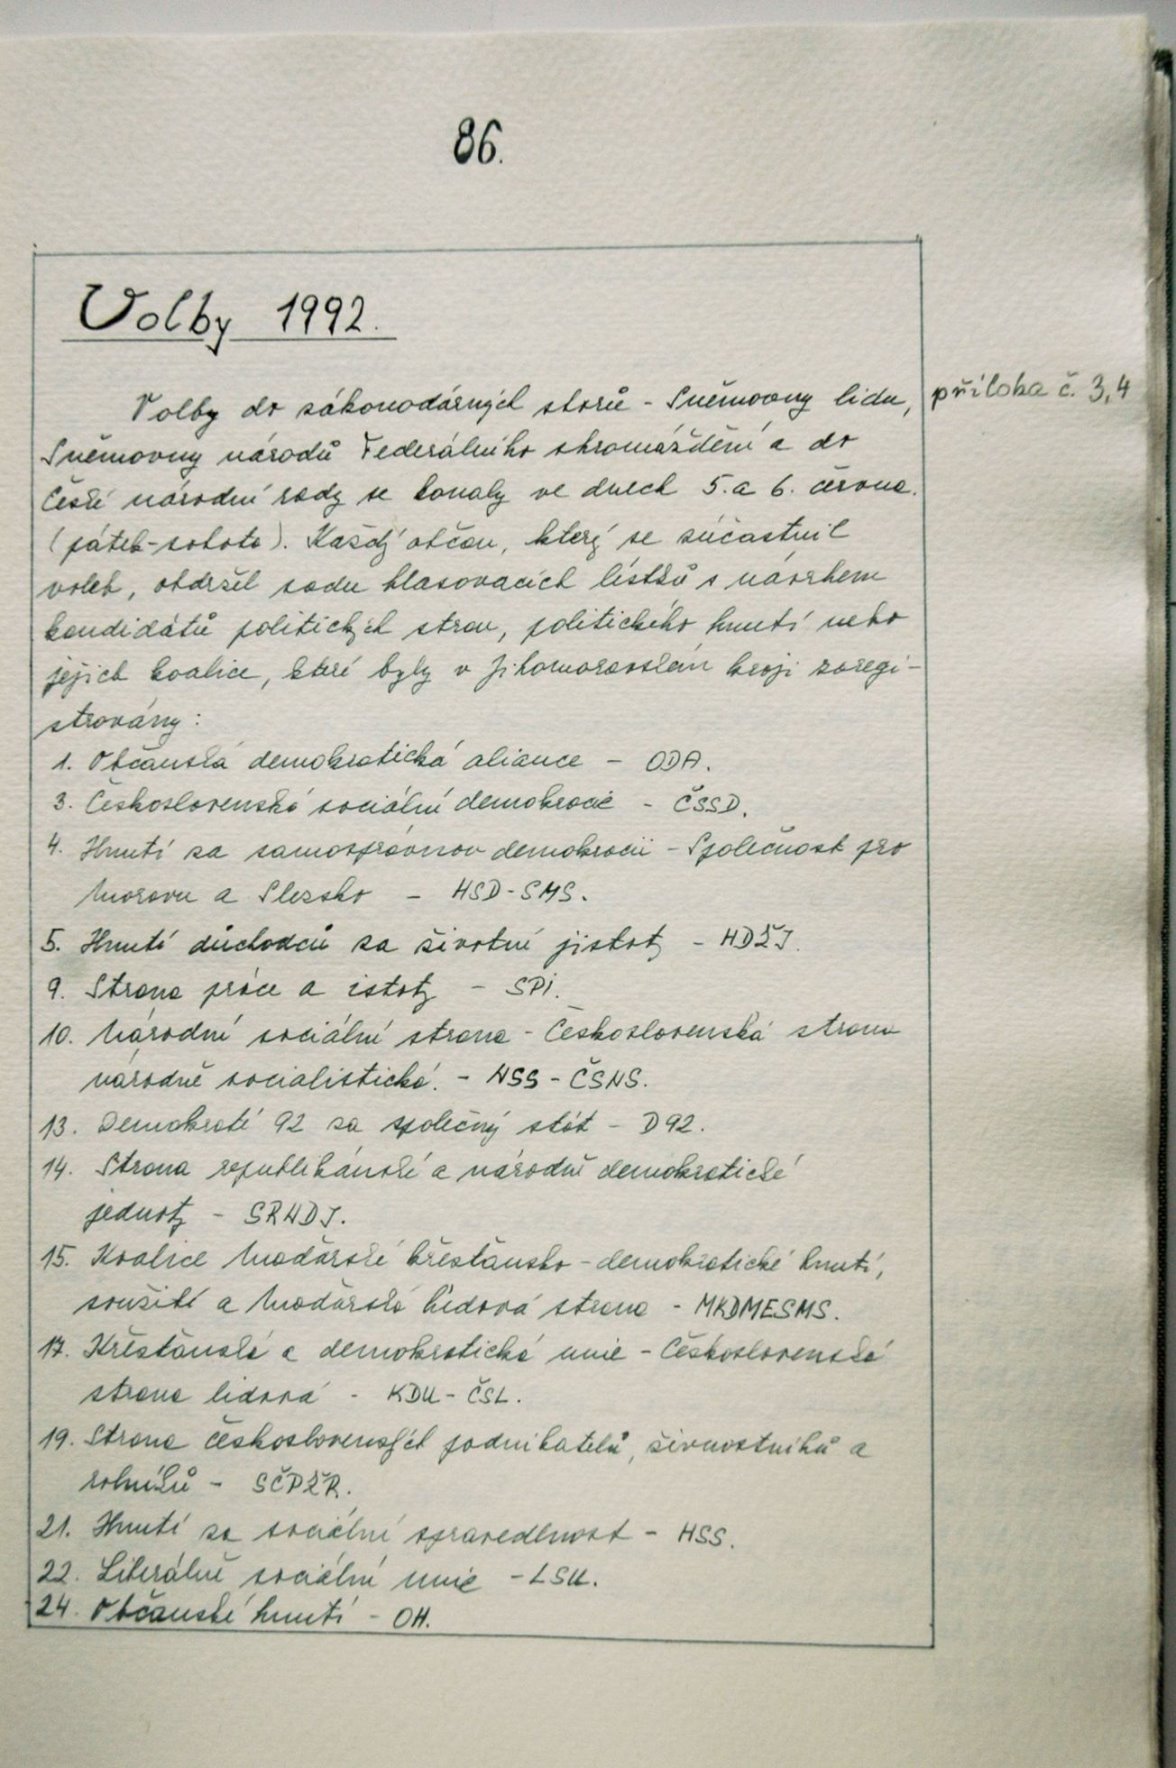 86.
Volby 1992.
Volby do zákonodárných sborů - Sněmovny lidu,
příloha č. 3,4
Sněmovny národů Federálního shromáždění a do
České národní rady se konaly ve dnech 5. a 6. června.
(pátek-sobota). Každý občan, který se zúčastnil
voleb, obdržel sadu hlasovacích lístků s návrhem
kandidátů politických stran, politického hnutí nebo
jejich koalice, které byly v Jihomoravském kraji zaregi-
strovány:
1. Občanská demokratická aliance - ODA.
3. Československá sociální demokracie - ČSSD.
4. Hnutí za samosprávnou demokracii - Společnost pro
Moravu a Slezsko - HSD-SMS.
5. Hnutí důchodců za životní jistoty - HDŽJ.
9. Strana práce a istoty - SPI.
10. Národní sociální strana - Československá strana
národně socialistická. - NSS - ČSNS.
13. Demokraté 92 za společný stát - D92.
14. Strana republikánské a národně demokratické
jednoty - SRNDJ.
15. Koalice Maďarské křesťansko-demokratické hnutí,
soužití a Maďarská lidová strana - MKDMESMS.
17. Křesťanská a demokratická unie - Československá
strana lidová - KDU - ČSL.
19. Strana československých podnikatelů, živnostníků a
rolníků - SČPŽR.
21. Hnutí za sociální spravedlnost - HSS.
22. Liberálně sociální unie - LSU.
24. Občanské hnutí - OH.